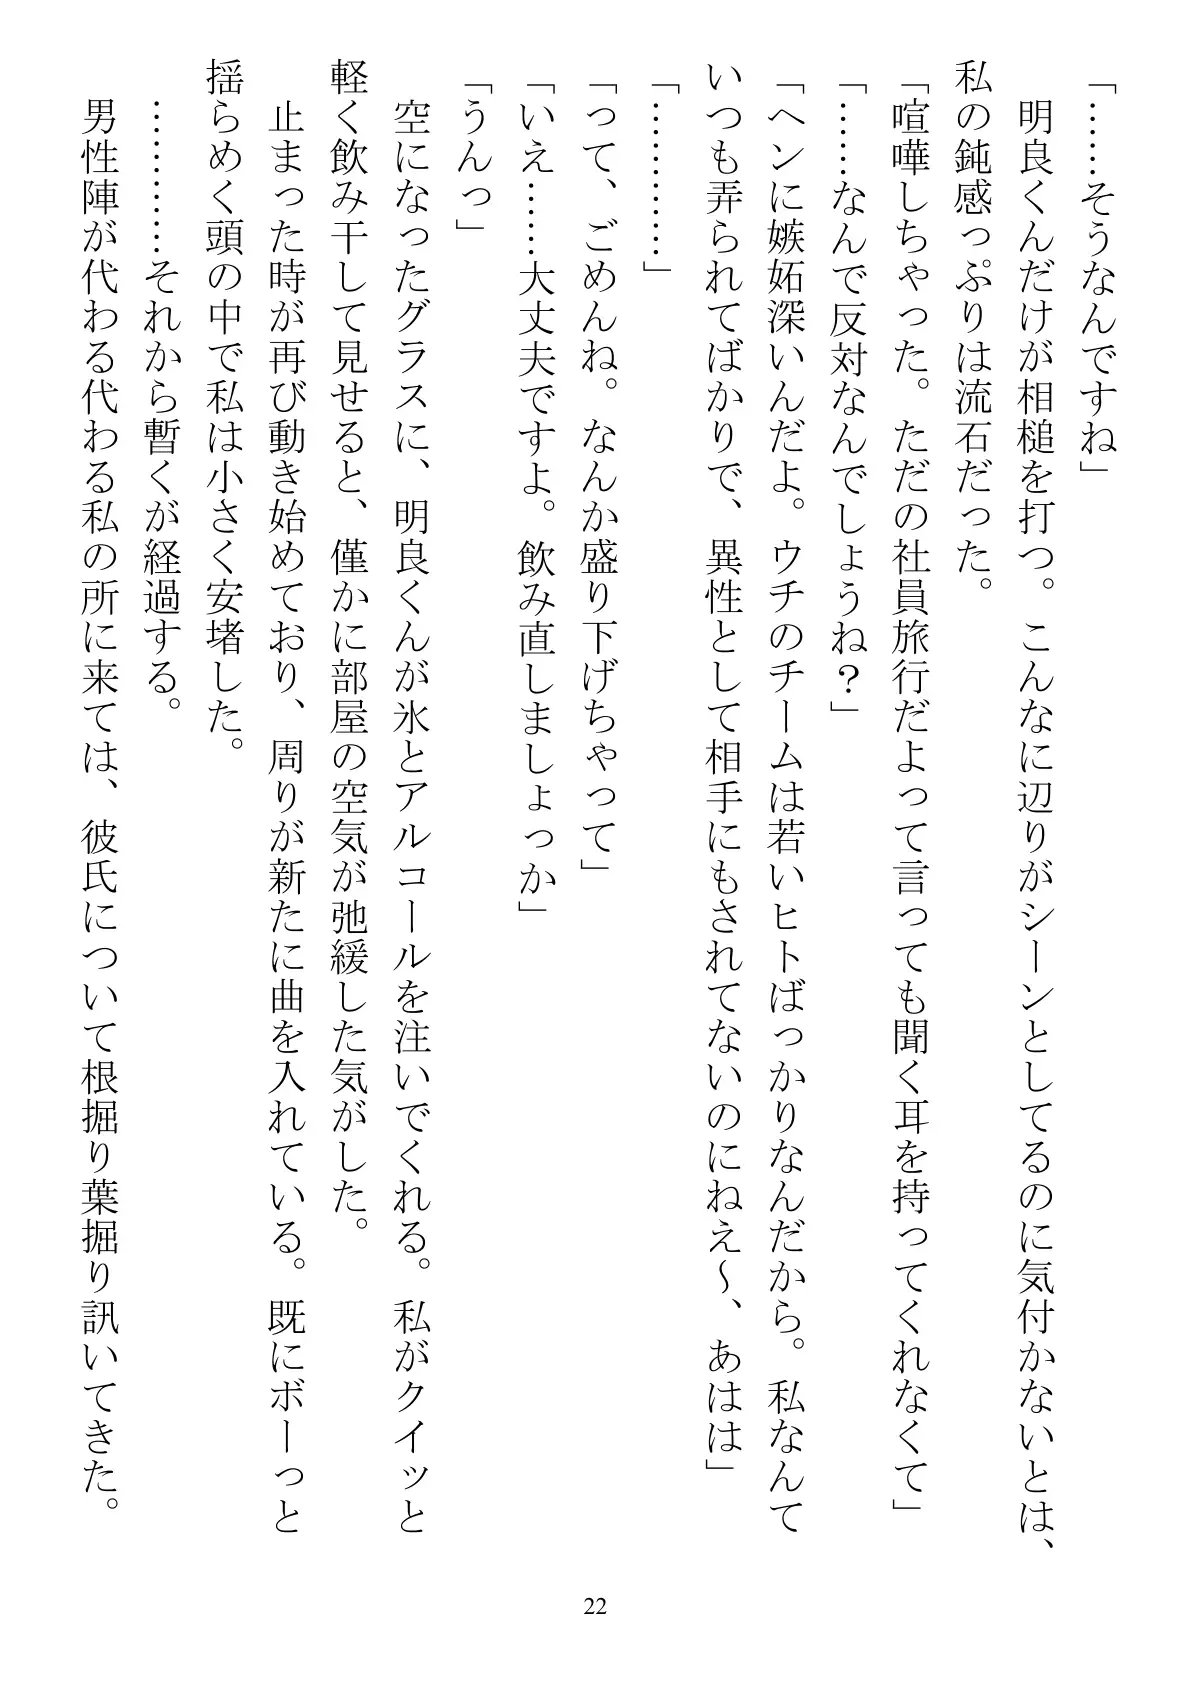 「……そうなんですね」
　明良くんだけが相槌を打つ。こんなに辺りがシーンとしてるのに気付かないとは、
私の鈍感っぷりは流石だった。
「喧嘩しちゃった。ただの社員旅行だよって言っても聞く耳を持ってくれなくて」
「……なんで反対なんでしょうね？」
「ヘンに嫉妬深いんだよ。ウチのチームは若いヒトばっかりなんだから。私なんて
いつも弄られてばかりで、異性として相手にもされてないのにねえ～、あはは」
「…………」
「って、ごめんね。なんか盛り下げちゃって」
「いえ……大丈夫ですよ。飲み直しましょっか」
「うんっ」
　空になったグラスに、明良くんが氷とアルコールを注いでくれる。私がクイッと
軽く飲み干して見せると、僅かに部屋の空気が弛緩した気がした。
　止まった時が再び動き始めており、周りが新たに曲を入れている。既にボーっと
揺らめく頭の中で私は小さく安堵した。
　…………それから暫くが経過する。
　男性陣が代わる代わる私の所に来ては、彼氏について根掘り葉掘り訊いてきた。
22